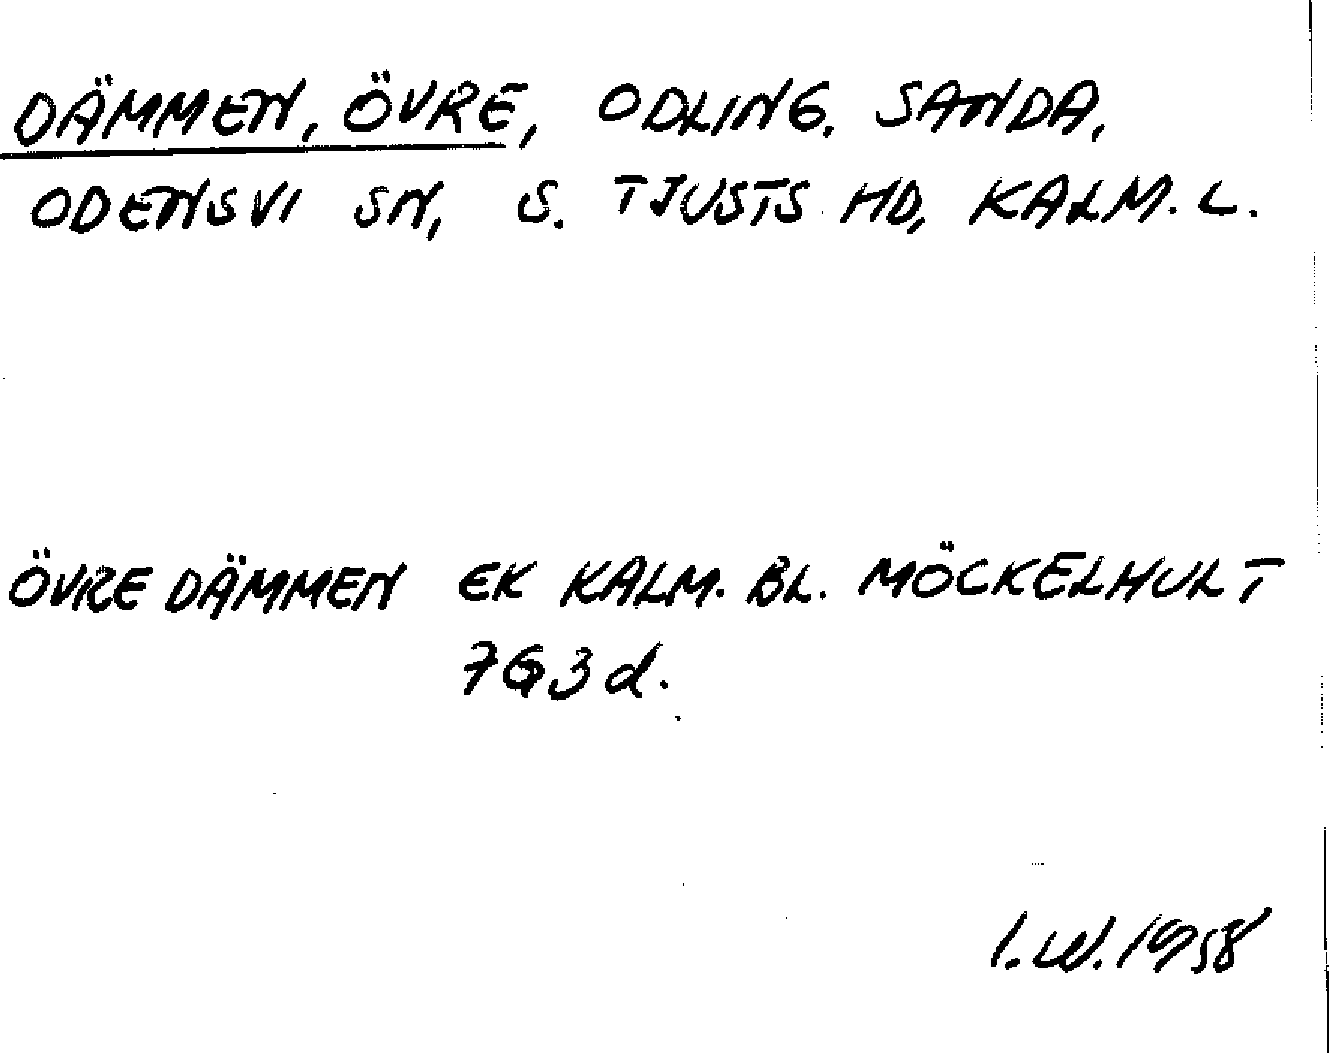 DÄMMEN, ÖVRE, ODLING. SANDA,
ODENSVI SN, S. TJUSTS HD, KALM. L.
ÖVRE DÄMMEN EK KALM. BL. MÖCKELHULT
7G3d.
I.W. 1958